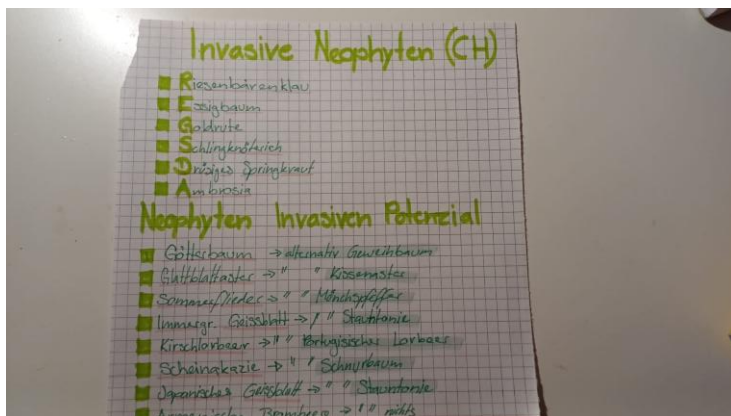 Invasive Neophyten (CH)
Riesenbärenklau
Essigbaum
Goldrute
Schlingknöterich
Drüsiges Springkraut
Ambrosia
Neophyten Invasiven Potenzial
Götterbaum → alternativ Geweihbaum
Glattblattaster → " " Kissenaster
Sommerflieder → " " Mönchspfeffer
Immergr. Geissblatt → " " Stauntonie
Kirschlorbeer → " " Portugisischer Lorbeer
Scheinakazie → " " Schnurbaum
Japanisches Geissblatt → " " Stauntonie
Armenische Brombeere → " " nichts